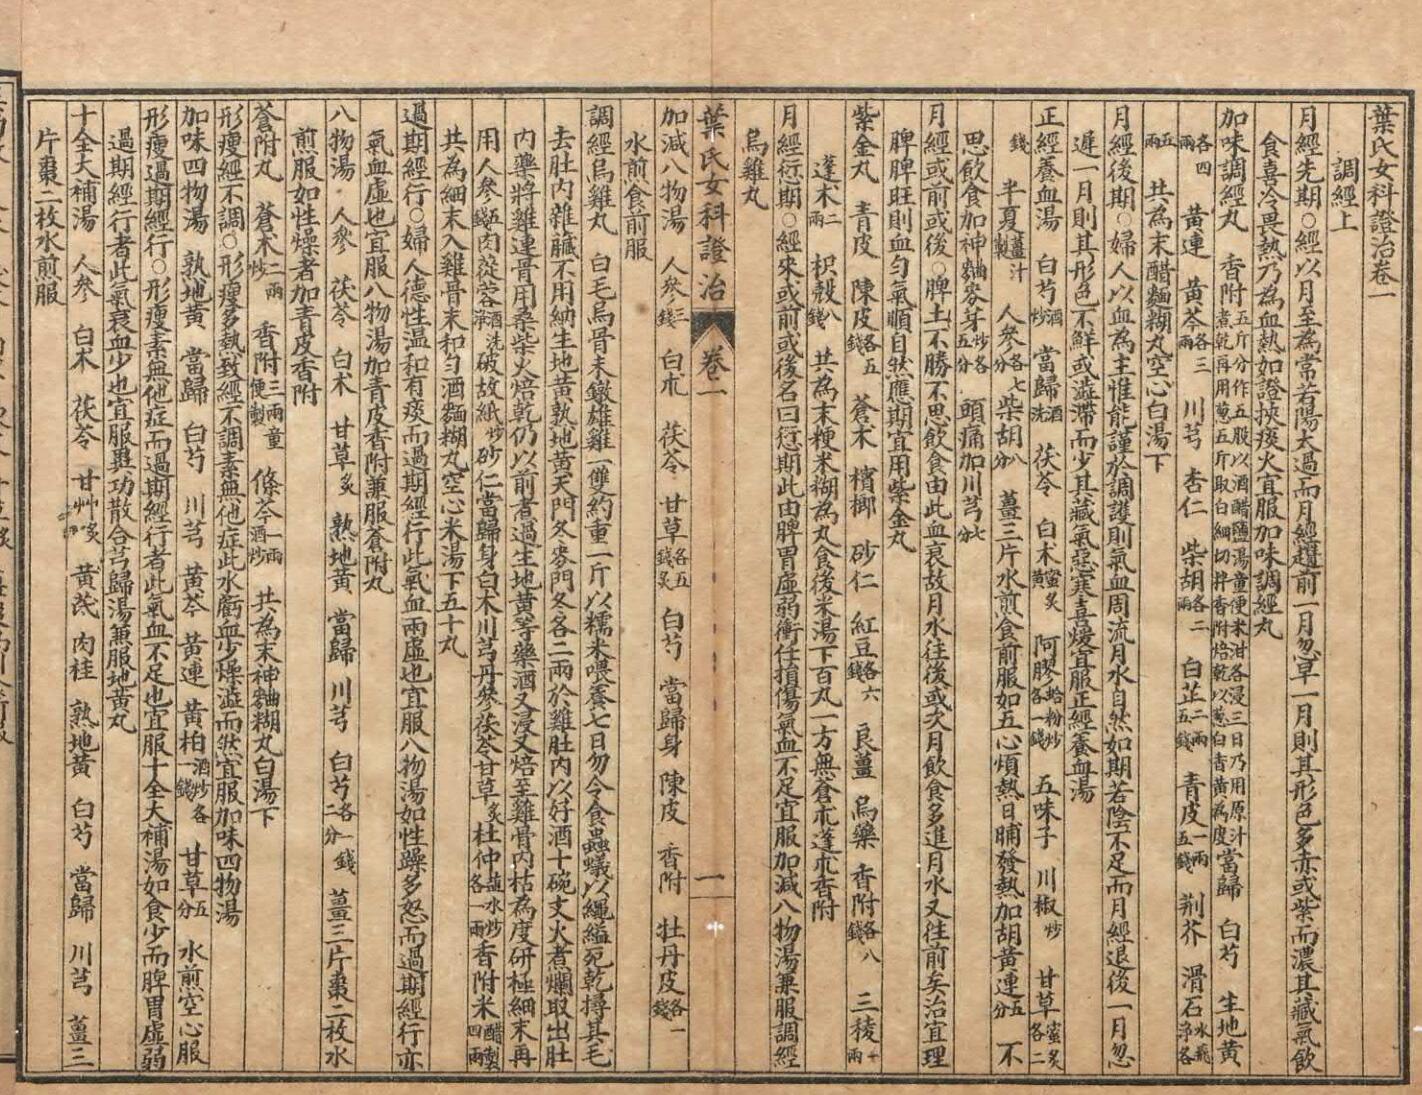 葉氏女科證治卷一
調經上
月經先期○經以月至為常若陽太過而月經趲前一月忽算一月則其形色多赤或紫而濃其藏氣飲
食喜冷畏熱乃為血熱如證挾痰火宜服加味調經丸
加味調經丸 香附五斤分作五股以酒醋鹽湯童便米泔各浸三日乃用原汁煮乾再用葱五斤取白細切拌香附焙乾以葱白青黃為度當歸 白芍 生地黃
各四兩 黃連 黃芩各三兩 川芎 杏仁 柴胡各二兩 白芷二兩五錢 青皮一兩五錢 荆芥 滑石水飛淨各
五兩 共為末醋麵糊丸空心白湯下
月經後期○婦人以血為主惟能謹於調護則氣血周流月水自然如期若陰不足而月經退後一月忽
遲一月則其形色不鮮或澁滯而少其藏氣惡寒喜煖宜服正經養血湯
正經養血湯 白芍酒炒 當歸酒洗 茯苓 白朮蜜炙黃 阿膠蛤粉炒各一錢 五味子 川椒炒 甘草蜜炙各二
錢 半夏薑汁製 人參各七分 柴胡八分 薑三片水煎食前服如五心煩熱日晡發熱加胡黃連五分 不
思飲食加神麯麥芽炒各五分 頭痛加川芎七分
月經或前或後○脾土不勝不思飲食由此血衰故月水往後或次月飲食多進月水又往前矣治宜理
脾脾旺則血勻氣順自然應期宜用紫金丸
紫金丸 青皮 陳皮各五錢 蒼朮 檳榔 砂仁 紅豆各六錢 良薑 烏藥 香附各八錢 三稜一兩
蓬朮二兩 枳殼八錢 共為末粳米糊為丸食後米湯下百丸一方無蒼朮蓬朮香附
月經衍期○經來或前或後名曰衍期此由脾胃虛弱衝任損傷氣血不足宜服加減八物湯兼服調經
烏雞丸
葉氏女科證治 卷一 一
加減八物湯 人參三錢 白朮 茯苓 甘草各五錢炙 白芍 當歸身 陳皮 香附 牡丹皮各一錢
水煎食前服
調經烏雞丸 白毛烏骨未鐓雄雞一雙約重一斤以糯米喂養七日勿令食蟲蟻以繩縊死乾撏其毛
去肚內雜臟不用納生地黃熟地黃天門冬麥門冬各二兩於雞肚內以好酒十碗文火煮爛取出肚
內藥將雞連骨用桑柴火焙乾仍以前者過生地黃等藥酒又浸又焙至雞骨肉枯為度研極細末再
用人參五錢肉蓯蓉酒洗淨破故紙炒砂仁當歸身白朮川芎丹參茯苓甘草炙杜仲鹽水炒各一兩香附米醋製四兩
共為細末入雞骨末和勻酒麵糊丸空心米湯下五十丸
過期經行○婦人德性溫和有痰而過期經行此氣血兩虛也宜服八物湯如性躁多怒而過期經行亦
氣血虛也宜服八物湯加青皮香附兼服蒼附丸
八物湯 人參 茯苓 白朮 甘草炙 熟地黃 當歸 川芎 白芍各一錢二分 薑三片棗二枚水
煎服如性燥者加青皮香附
蒼附丸 蒼朮二兩炒 香附三兩童便製 條芩一兩酒炒 共為末神麯糊丸白湯下
形瘦經不調○形瘦多熱致經不調素無他症此水虧血少燥澁而然宜服加味四物湯
加味四物湯 孰地黃 當歸 白芍 川芎 黃芩 黃連 黃柏酒炒各一錢 甘草五分 水煎空心服
形瘦過期經行○形瘦素無他症而過期經行者此氣血不足也宜服十全大補湯如食少而脾胃虛弱
過期經行者此氣衰血少也宜服異功散合芎歸湯兼服地黃丸
十全大補湯 人參 白朮 茯苓 甘草炙 黃芪 肉桂 熟地黃 白芍 當歸 川芎 薑三
片棗二枚水煎服